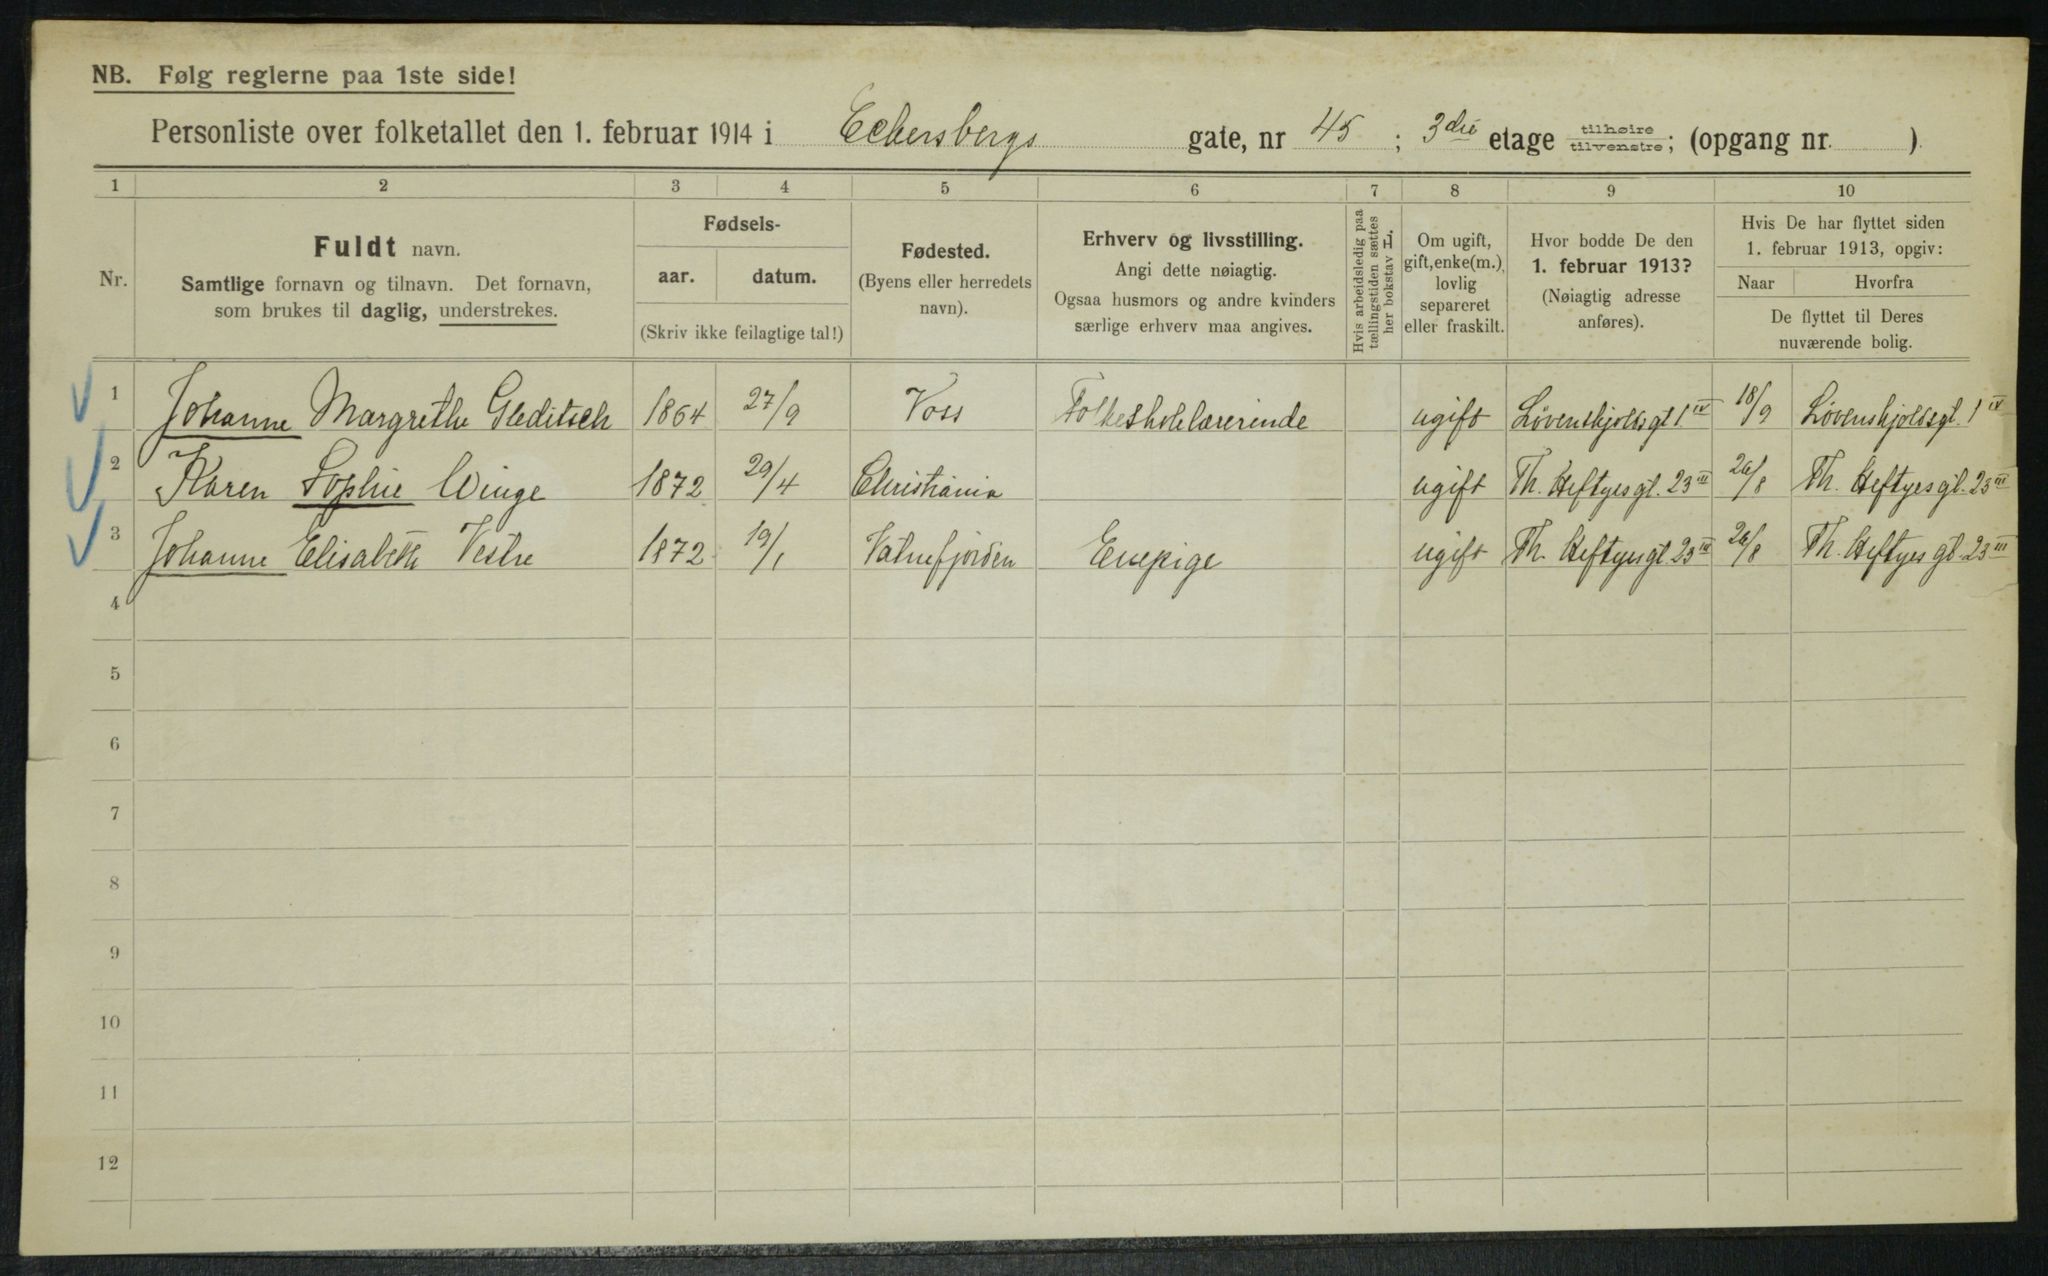 NB. Følg reglerne paa 1ste side!
Personliste over folketallet den 1. februar 1914 i Eckersbergs gate, nr 45 ; 3die etage tilhøire tilvenstre; (opgang nr. )
1 2 3 4 5 6 7 8 9 10
Nr.
Fuldt navn.
Samtlige fornavn og tilnavn. Det fornavn,
som brukes til daglig, understrekes.
Fødsels-
aar. datum.
(Skriv ikke feilagtige tal!)
Fødested.
(Byens eller herredets
navn).
Erhverv og livsstilling.
Angi dette nøiagtig.
Ogsaa husmors og andre kvinders
særlige erhverv maa angives.
Hvis arbeidsledig paa
tællingstiden sættes
her bokstav L.
Om ugift,
gift, enke(m.),
lovlig
separeret
eller fraskilt.
Hvor bodde De den
1. februar 1913?
(Nøiagtig adresse
anføres).
Hvis De har flyttet siden
1. februar 1913, opgiv:
Naar Hvorfra
De flyttet til Deres
nuværende bolig.
1 Johanne Margrethe Gleditsch 1864 27/9 Voss Folkeskolelærerinde ugift Løvenskjoldsgt 1 IV 18/9 Løvenskjoldsgt. 1 IV
2 Karen Sophie Winge 1872 29/4 Christiania ugift Th. Heftyesgt. 23 III 26/8 Th. Heftyesgt. 23 III
3 Johanne Elisabeth Vestre 1872 19/1 Vatnefjorden Enepige ugift Th. Heftyesgt 23 III 26/8 Th. Heftyes gt. 23 III
4
5
6
7
8
9
10
11
12